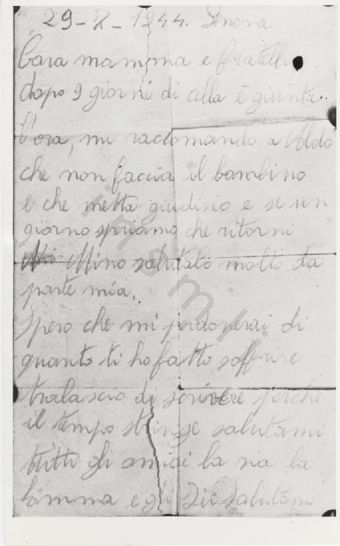 29-X-1944. Genova
Cara mamma e fratelli
dopo 9 giorni di cella è giunta
l'ora, mi raccomando a Aldo
che non faccia il bambino
e che metta giudino e se un
giorno speriamo che ritorni
Mino salutalo molto da
parte mia.
Spero che mi perdonerai di
quanto ti ho fatto soffrire
tralascio di scrivere perché
il tempo stringe salutami
tutti gli amici la na la
e gli Zii Salutami